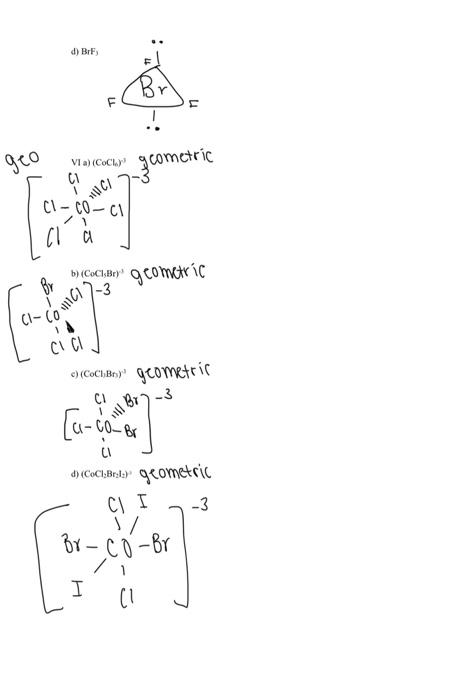 d) BrF₃
F
Br
F F
geo VI a) (CoCl₆)⁻³ geometric
Cl Cl -3
Cl - CO - Cl
Cl Cl
b) (CoCl₅Br)⁻³ geometric
Br Cl -3
Cl - CO
Cl Cl
c) (CoCl₃Br₃)⁻³ geometric
Cl Br -3
Cl - CO - Br
Cl
d) (CoCl₂Br₂I₂)⁻³ geometric
Cl I -3
Br - CO - Br
I Cl